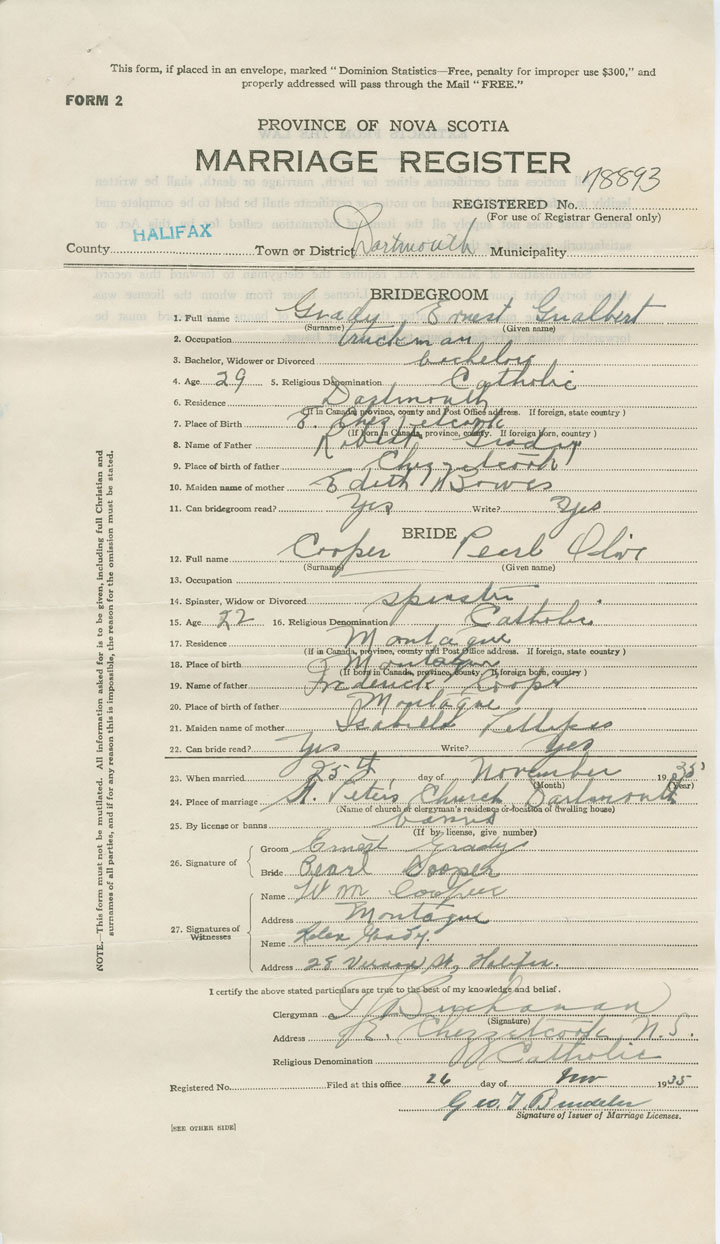 This form, if placed in an envelope, marked "Dominion Statistics—Free, penalty for improper use $300," and
properly addressed will pass through the Mail "FREE."
FORM 2
PROVINCE OF NOVA SCOTIA
MARRIAGE REGISTER
78893
REGISTERED No.
(For use of Registrar General only)
County HALIFAX Town or District Dartmouth Municipality
BRIDEGROOM
1. Full name Grady Ernest Gualbert
(Surname) (Given name)
2. Occupation truckman
3. Bachelor, Widower or Divorced bachelor
4. Age 29 5. Religious Denomination Catholic
6. Residence Dartmouth
(If in Canada, province, county and Post Office address. If foreign, state country)
7. Place of Birth E. Chezzetcook
(If born in Canada, province, county. If foreign born, country)
8. Name of Father Robert Grady
9. Place of birth of father Chezzetcook
10. Maiden name of mother Edith Bowes
11. Can bridegroom read? Yes Write? Yes
BRIDE
12. Full name Cooper Pearl Olive
(Surname) (Given name)
13. Occupation
14. Spinster, Widow or Divorced spinster
15. Age 22 16. Religious Denomination Catholic
17. Residence Montague
(If in Canada, province, county and Post Office address. If foreign, state country)
18. Place of birth Montague
(If born in Canada, province, county. If foreign born, country)
19. Name of father Frederick Cooper
20. Place of birth of father Montague
21. Maiden name of mother Isabella
22. Can bride read? Yes Write? Yes
23. When married 25th day of November 1935
(Month) (Year)
24. Place of marriage St. Peter's Church Dartmouth
(Name of church or clergyman's residence or location of dwelling house)
25. By license or banns banns
(If by license, give number)
26. Signature of
Groom Ernest Grady
Bride Pearl Cooper
27. Signatures of Witnesses
Name Wm Cooper
Address Montague
Name Helen Grady.
Address 28 Vernon St, Halifax.
I certify the above stated particulars are true to the best of my knowledge and belief.
Clergyman Buchanan
(Signature)
Address E. Chezzetcook, N.S.
Religious Denomination Catholic
Registered No. Filed at this office 26 day of Nov 1935
Geo. T.
Signature of Issuer of Marriage Licenses.
[SEE OTHER SIDE]
NOTE.—This form must not be mutilated. All information asked for is to be given, including full Christian and
surnames of all parties, and if for any reason this is impossible, the reason for the omission must be stated.